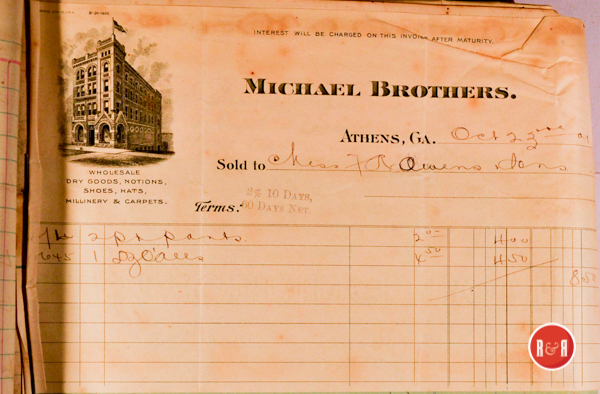 INTEREST WILL BE CHARGED ON THIS INVOICE AFTER MATURITY.
MICHAEL BROTHERS.
ATHENS, GA. Oct 22nd 01
Sold to Mess F R Owens & Sons
WHOLESALE
DRY GOODS, NOTIONS,
SHOES, HATS,
MILLINERY & CARPETS.
Terms: 2% 10 Days,
60 Days Net.
2 pr pants. 2 00 4 00
645 1 Dz O'alls 4 50 4 50
8 50
R&R